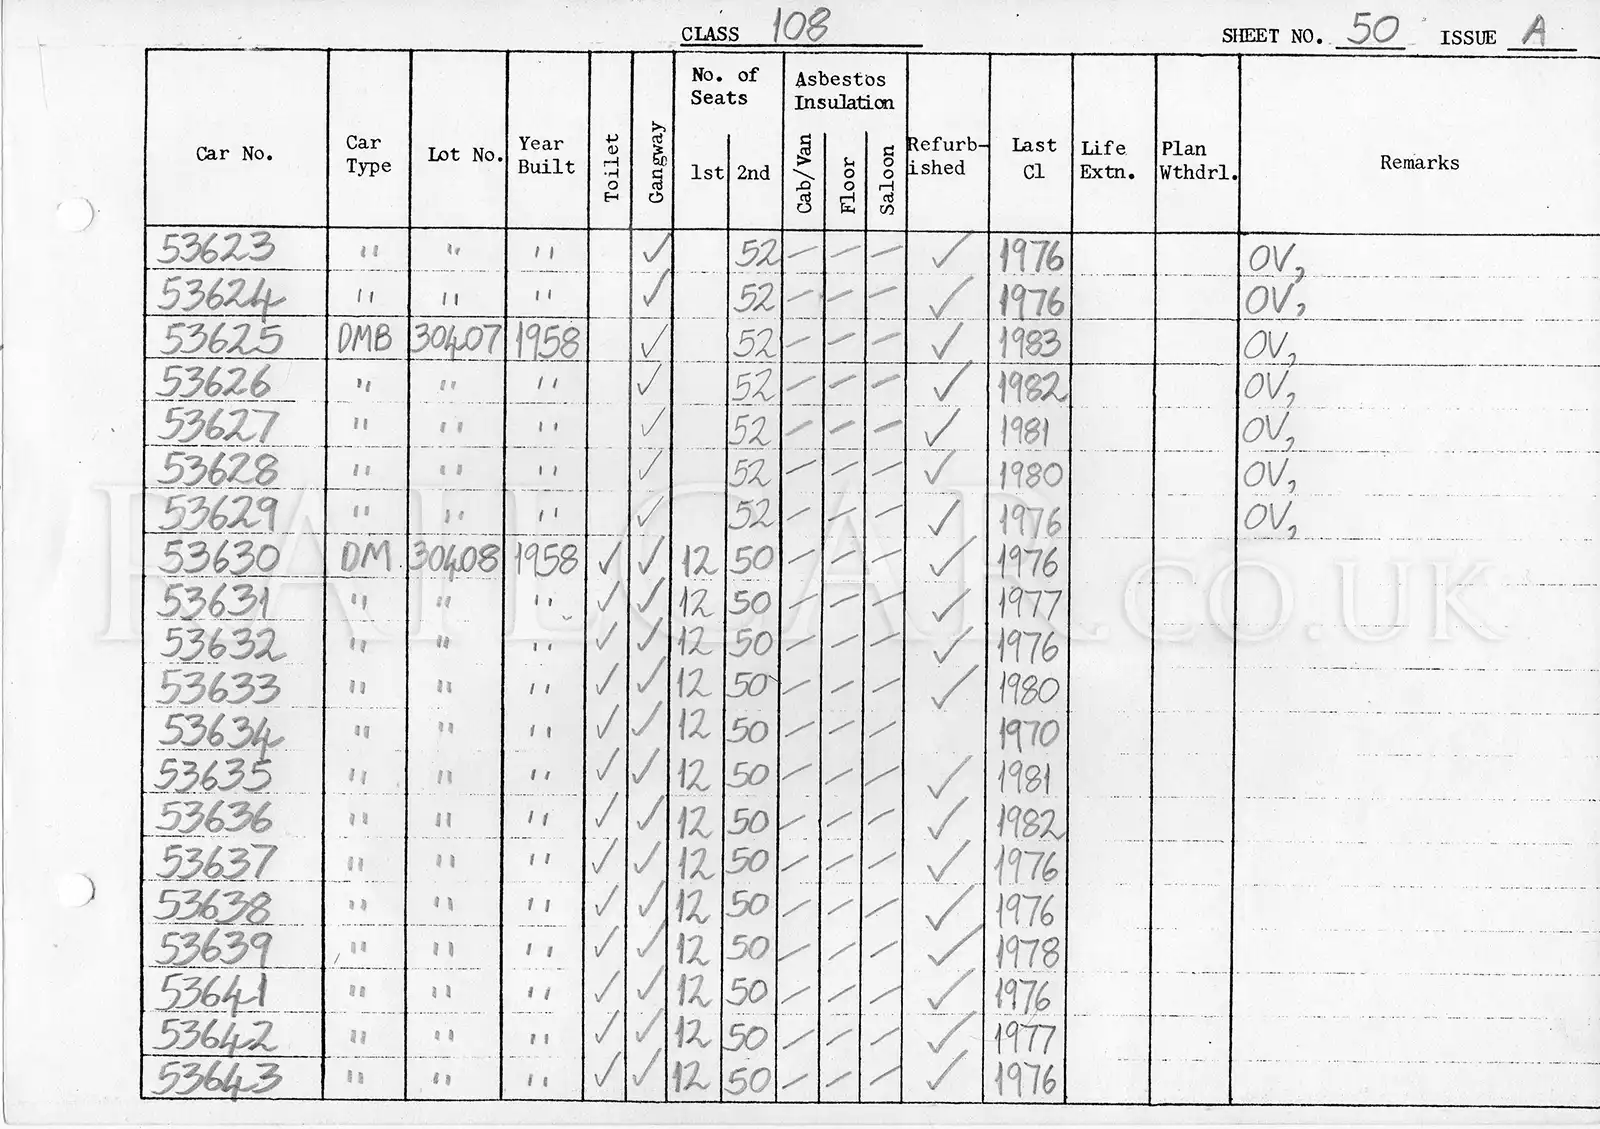 CLASS 108 SHEET NO. 50 ISSUE A
Car No. Car Type Lot No. Year Built Toilet Gangway No. of Seats 1st 2nd Asbestos Insulation Cab/Van Floor Saloon Refurb-ished Last Cl Life Extn. Plan Wthdrl. Remarks
53623 " " " ✓ 52 – – – ✓ 1976 OV,
53624 " " " ✓ 52 – – – ✓ 1976 OV,
53625 DMB 30407 1958 ✓ 52 – – – ✓ 1983 OV,
53626 " " " ✓ 52 – – – ✓ 1982 OV,
53627 " " " ✓ 52 – – – ✓ 1981 OV,
53628 " " " ✓ 52 – – – ✓ 1980 OV,
53629 " " " ✓ 52 – – – ✓ 1976 OV,
53630 DM 30408 1958 ✓ ✓ 12 50 – – – ✓ 1976
53631 " " " ✓ ✓ 12 50 – – – ✓ 1977
53632 " " " ✓ ✓ 12 50 – – – ✓ 1976
53633 " " " ✓ ✓ 12 50 – – – ✓ 1980
53634 " " " ✓ ✓ 12 50 – – – 1970
53635 " " " ✓ ✓ 12 50 – – – ✓ 1981
53636 " " " ✓ ✓ 12 50 – – – ✓ 1982
53637 " " " ✓ ✓ 12 50 – – – ✓ 1976
53638 " " " ✓ ✓ 12 50 – – – ✓ 1976
53639 " " " ✓ ✓ 12 50 – – – ✓ 1978
53641 " " " ✓ ✓ 12 50 – – – ✓ 1976
53642 " " " ✓ ✓ 12 50 – – – ✓ 1977
53643 " " " ✓ ✓ 12 50 – – – ✓ 1976
RAILCAR.CO.UK